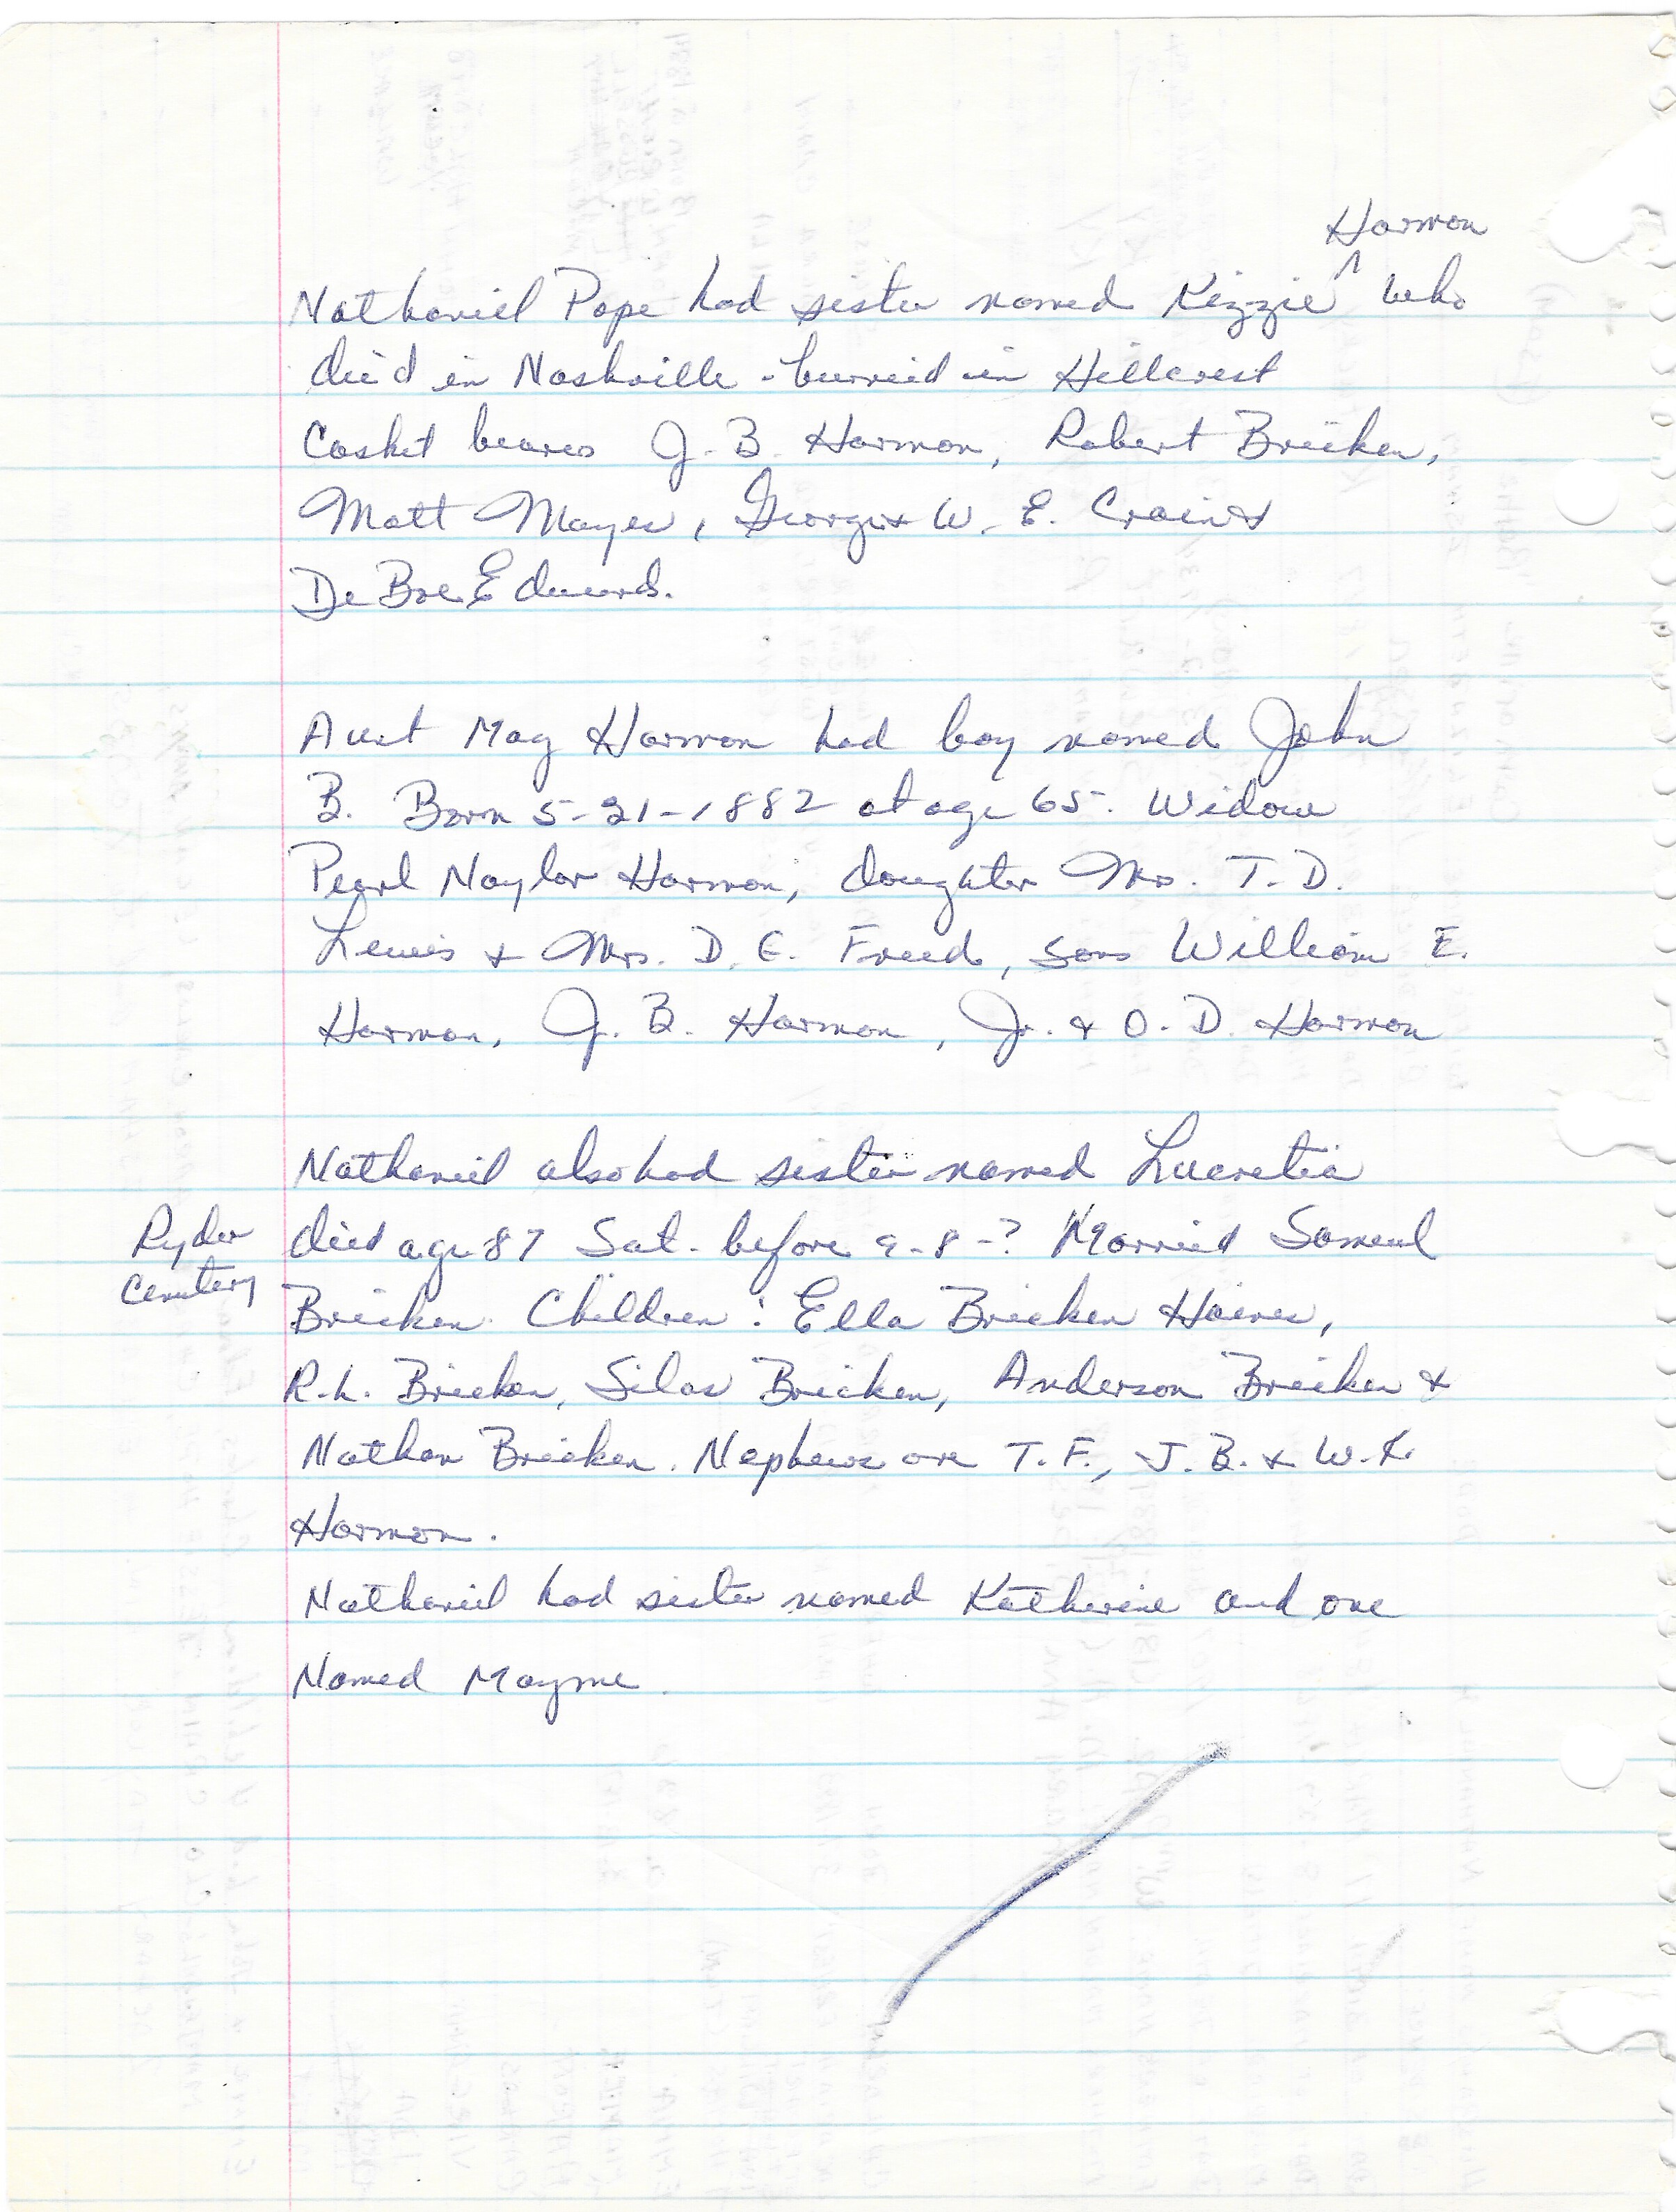 Harmon
Nathaniel Pope had sister named Kizzie ^ who
died in Nashville - burried in Hillcrest
Casket beares J. B. Harmon, Robert Bricken,
Matt Mayes, George & W. E. Crain &
DeBoe Edwards.
Aunt Mag Harmon had boy named John
B. Born 5-21-1882 at age 65. Widow
Pearl Naylor Harmon, daughter Mrs. T. D.
Lewis & Mrs. D. E. Freed, sons William E.
Harmon, J. B. Harmon, Jr. & O. D. Harmon
Nathaniel also had sister named Lucretia
Ryder Cemetery
died age 87 Sat. before 9-8-? Married Samuel
Bricken. Children: Ella Bricken Haines,
R. L. Bricken, Silas Bricken, Anderson Bricken &
Nathan Bricken. Nephews are T. F., J. B. & W. K.
Harmon.
Nathaniel had sister named Katherine and one
Named Mayme.